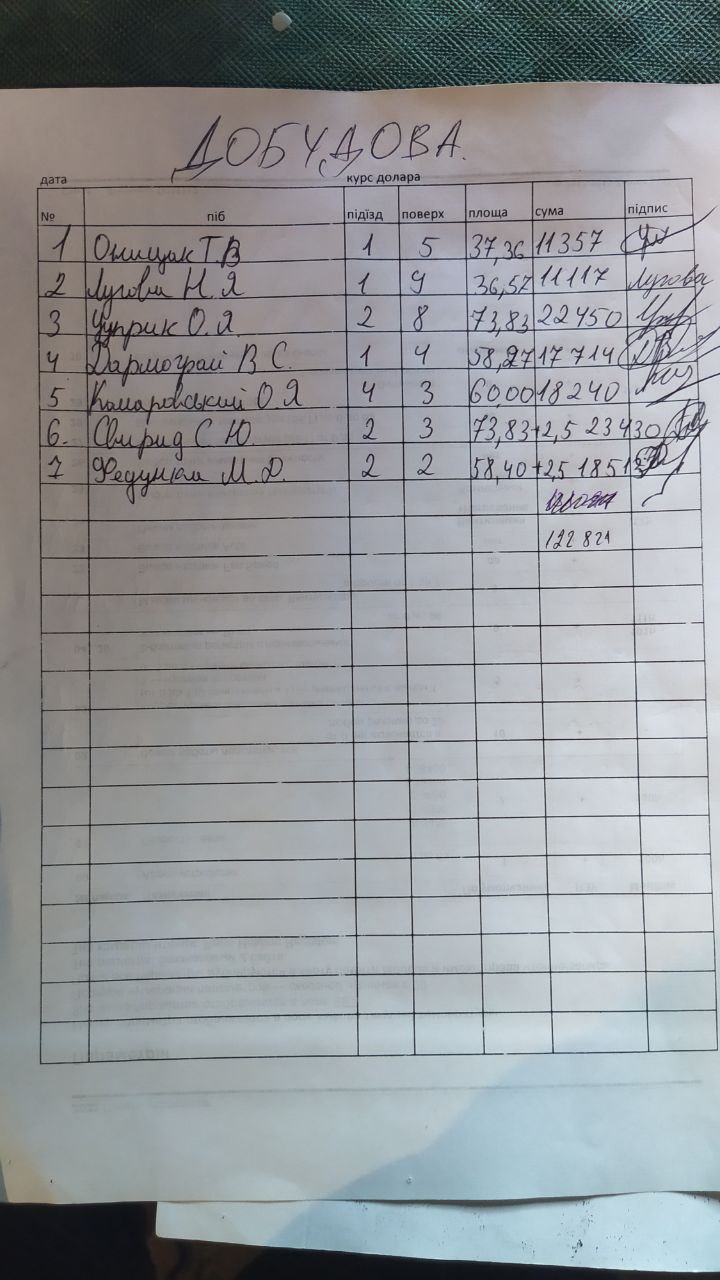 ДОБУДОВА.
дата курс долара
№ піб підїзд поверх площа сума підпис
1 Онищак Т.В 1 5 37,36 11357
2 Лугова Н.Я 1 9 36,57 11117 Лугова
3 Чуприк О.Я. 2 8 73,83 22450
4 Дармограй В С. 1 4 58,27 17714
5 Комаровський О Я 4 3 60,00 18240
6. Свирид С Ю. 2 3 73,83+2,5 23430
7 Федунків М. Д. 2 2 58,40+2,5
122 821